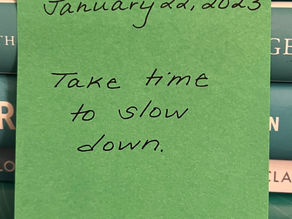 January 22, 2023
Take time
to slow
down.